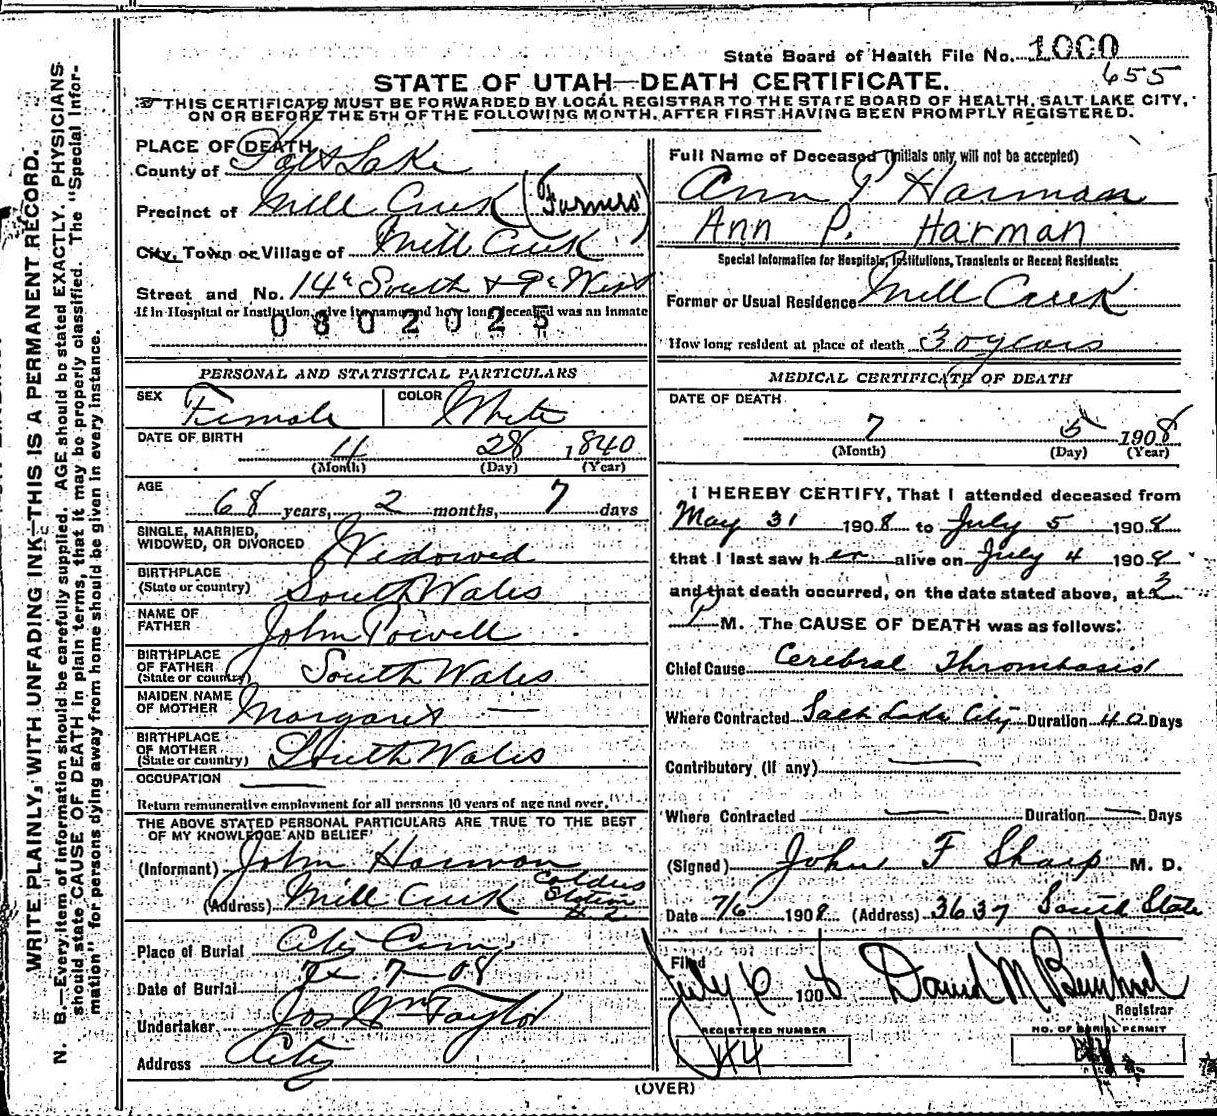 State Board of Health File No. 1000
655
STATE OF UTAH—DEATH CERTIFICATE.
THIS CERTIFICATE MUST BE FORWARDED BY LOCAL REGISTRAR TO THE STATE BOARD OF HEALTH, SALT LAKE CITY,
ON OR BEFORE THE 5TH OF THE FOLLOWING MONTH, AFTER FIRST HAVING BEEN PROMPTLY REGISTERED.
WRITE PLAINLY, WITH UNFADING INK—THIS IS A PERMANENT RECORD.
N. B.—Every item of information should be carefully supplied. AGE should be stated EXACTLY. PHYSICIANS
should state CAUSE OF DEATH in plain terms, that it may be properly classified. The "Special Infor-
mation" for persons dying away from home should be given in every instance.
PLACE OF DEATH
County of Salt Lake
Precinct of Mill Creek (Farmers)
City, Town or Village of Mill Creek
Street and No. 14th South & 9th West
If in Hospital or Institution, give its name and how long deceased was an inmate
0802025
PERSONAL AND STATISTICAL PARTICULARS
SEX Female COLOR White
DATE OF BIRTH 4 28 1840
(Month) (Day) (Year)
AGE 68 years, 2 months, 7 days
SINGLE, MARRIED,
WIDOWED, OR DIVORCED Widowed
BIRTHPLACE
(State or country) South Wales
NAME OF
FATHER John Powell
BIRTHPLACE
OF FATHER
(State or country) South Wales
MAIDEN NAME
OF MOTHER Margaret —
BIRTHPLACE
OF MOTHER
(State or country) South Wales
OCCUPATION —
Return remunerative employment for all persons 10 years of age and over.
THE ABOVE STATED PERSONAL PARTICULARS ARE TRUE TO THE BEST
OF MY KNOWLEDGE AND BELIEF
(Informant) John Harman
(Address) Mill Creek Station
Place of Burial City Cem.
Date of Burial 7-08
Undertaker Jos Wm Taylor
Address City
Full Name of Deceased (Initials only, will not be accepted)
Ann P Harman
Ann P. Harman
Special Information for Hospitals, Institutions, Transients or Recent Residents:
Former or Usual Residence Mill Creek
How long resident at place of death 30 years
MEDICAL CERTIFICATE OF DEATH
DATE OF DEATH
7 5 1908
(Month) (Day) (Year)
I HEREBY CERTIFY, That I attended deceased from
May 31 1908 to July 5 1908
that I last saw her alive on July 4 1908
and that death occurred, on the date stated above, at 3
P M. The CAUSE OF DEATH was as follows:
Chief Cause Cerebral Thrombosis
Where Contracted Salt Lake City Duration 40 Days
Contributory (if any) —
Where Contracted — Duration — Days
(Signed) John F Sharp M. D.
Date 7/6 1908 (Address) 3637 South State
Filed
July 6 1908 David M
Registrar
REGISTERED NUMBER
NO. OF BURIAL PERMIT
(OVER)